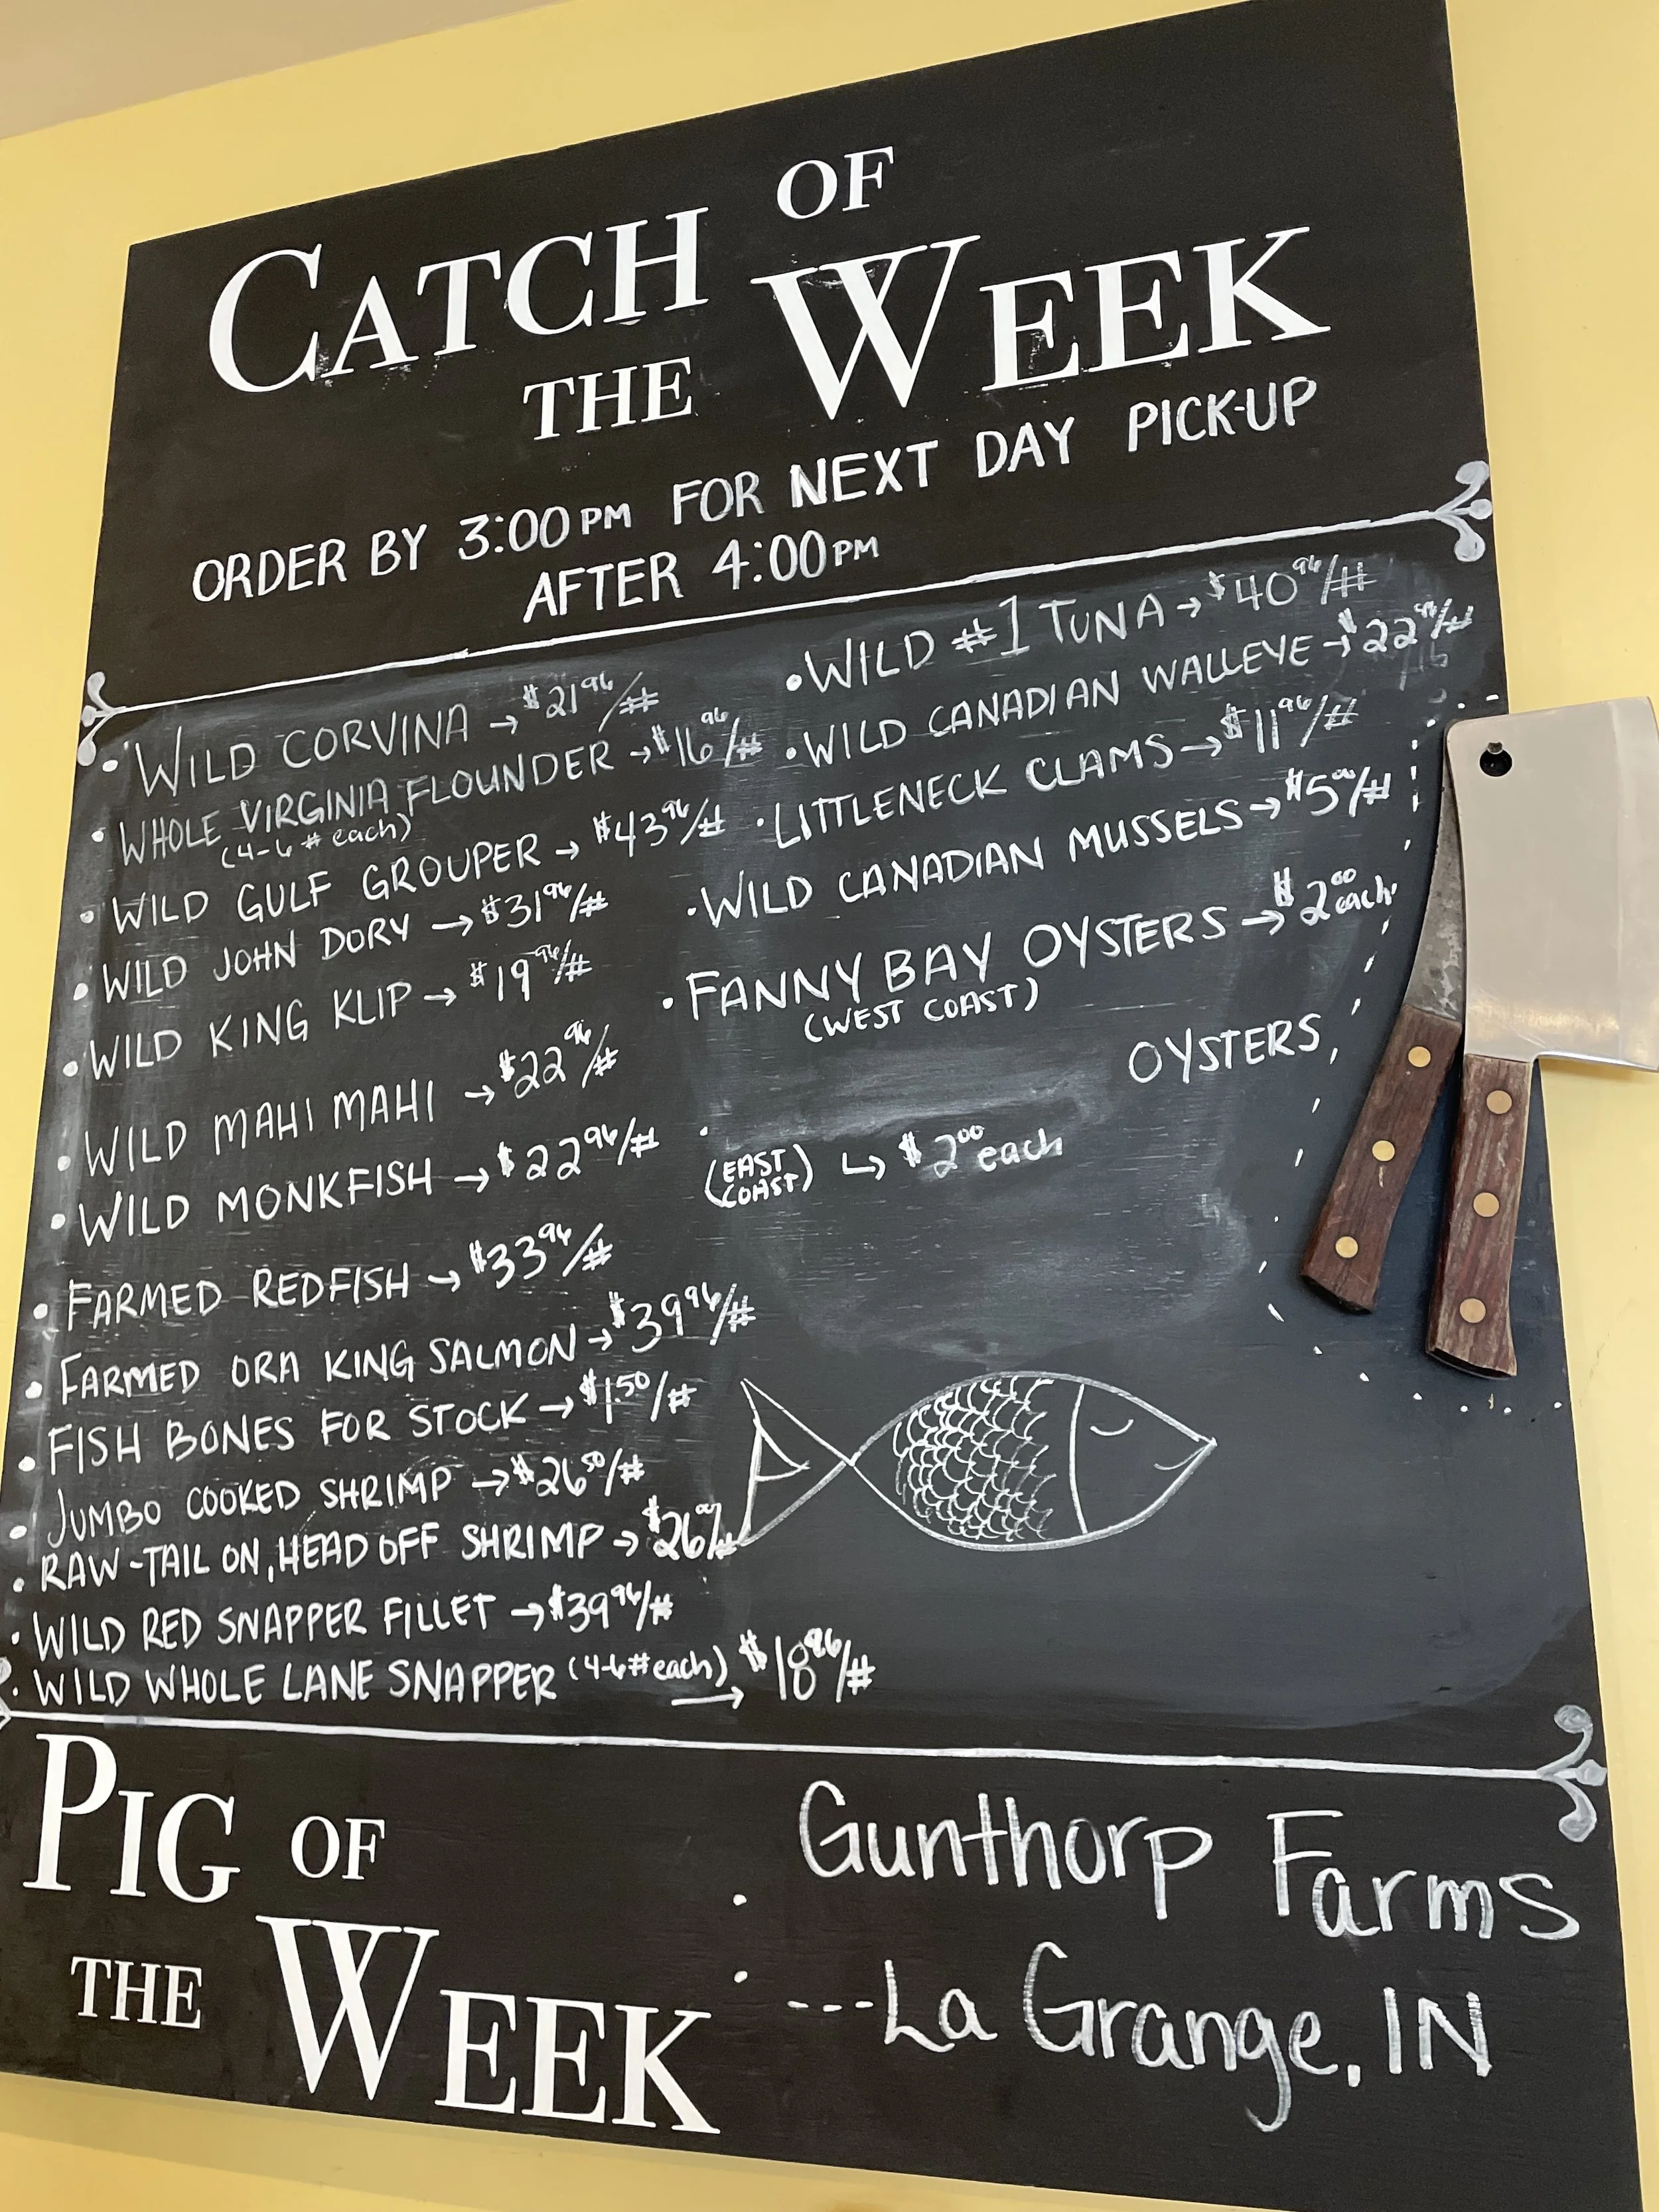 CATCH OF
THE WEEK
ORDER BY 3:00PM FOR NEXT DAY PICK-UP
AFTER 4:00PM
• WILD CORVINA → $21 96/#
• WHOLE VIRGINIA FLOUNDER → $16 96/#
(4-6 # each)
• WILD GULF GROUPER → $43 96/#
• WILD JOHN DORY → $31 96/#
• WILD KING KLIP → $19 96/#
• WILD MAHI MAHI → $22 96/#
• WILD MONKFISH → $22 96/#
• FARMED REDFISH → $33 96/#
• FARMED ORA KING SALMON → $39 96/#
• FISH BONES FOR STOCK → $1.50/#
• JUMBO COOKED SHRIMP → $26 50/#
• RAW-TAIL ON, HEAD OFF SHRIMP → $26 00/#
• WILD RED SNAPPER FILLET → $39 96/#
• WILD WHOLE LANE SNAPPER (4-6# each) → $18 96/#
• WILD #1 TUNA → $40 96/#
• WILD CANADIAN WALLEYE → $22 96/#
• LITTLENECK CLAMS → $11 96/#
• WILD CANADIAN MUSSELS → $5 00/#
• FANNY BAY OYSTERS → $2 00 each
(WEST COAST)
• OYSTERS
(EAST COAST) ↳ $2 00 each
PIG OF
THE WEEK
: Gunthorp Farms
---La Grange, IN